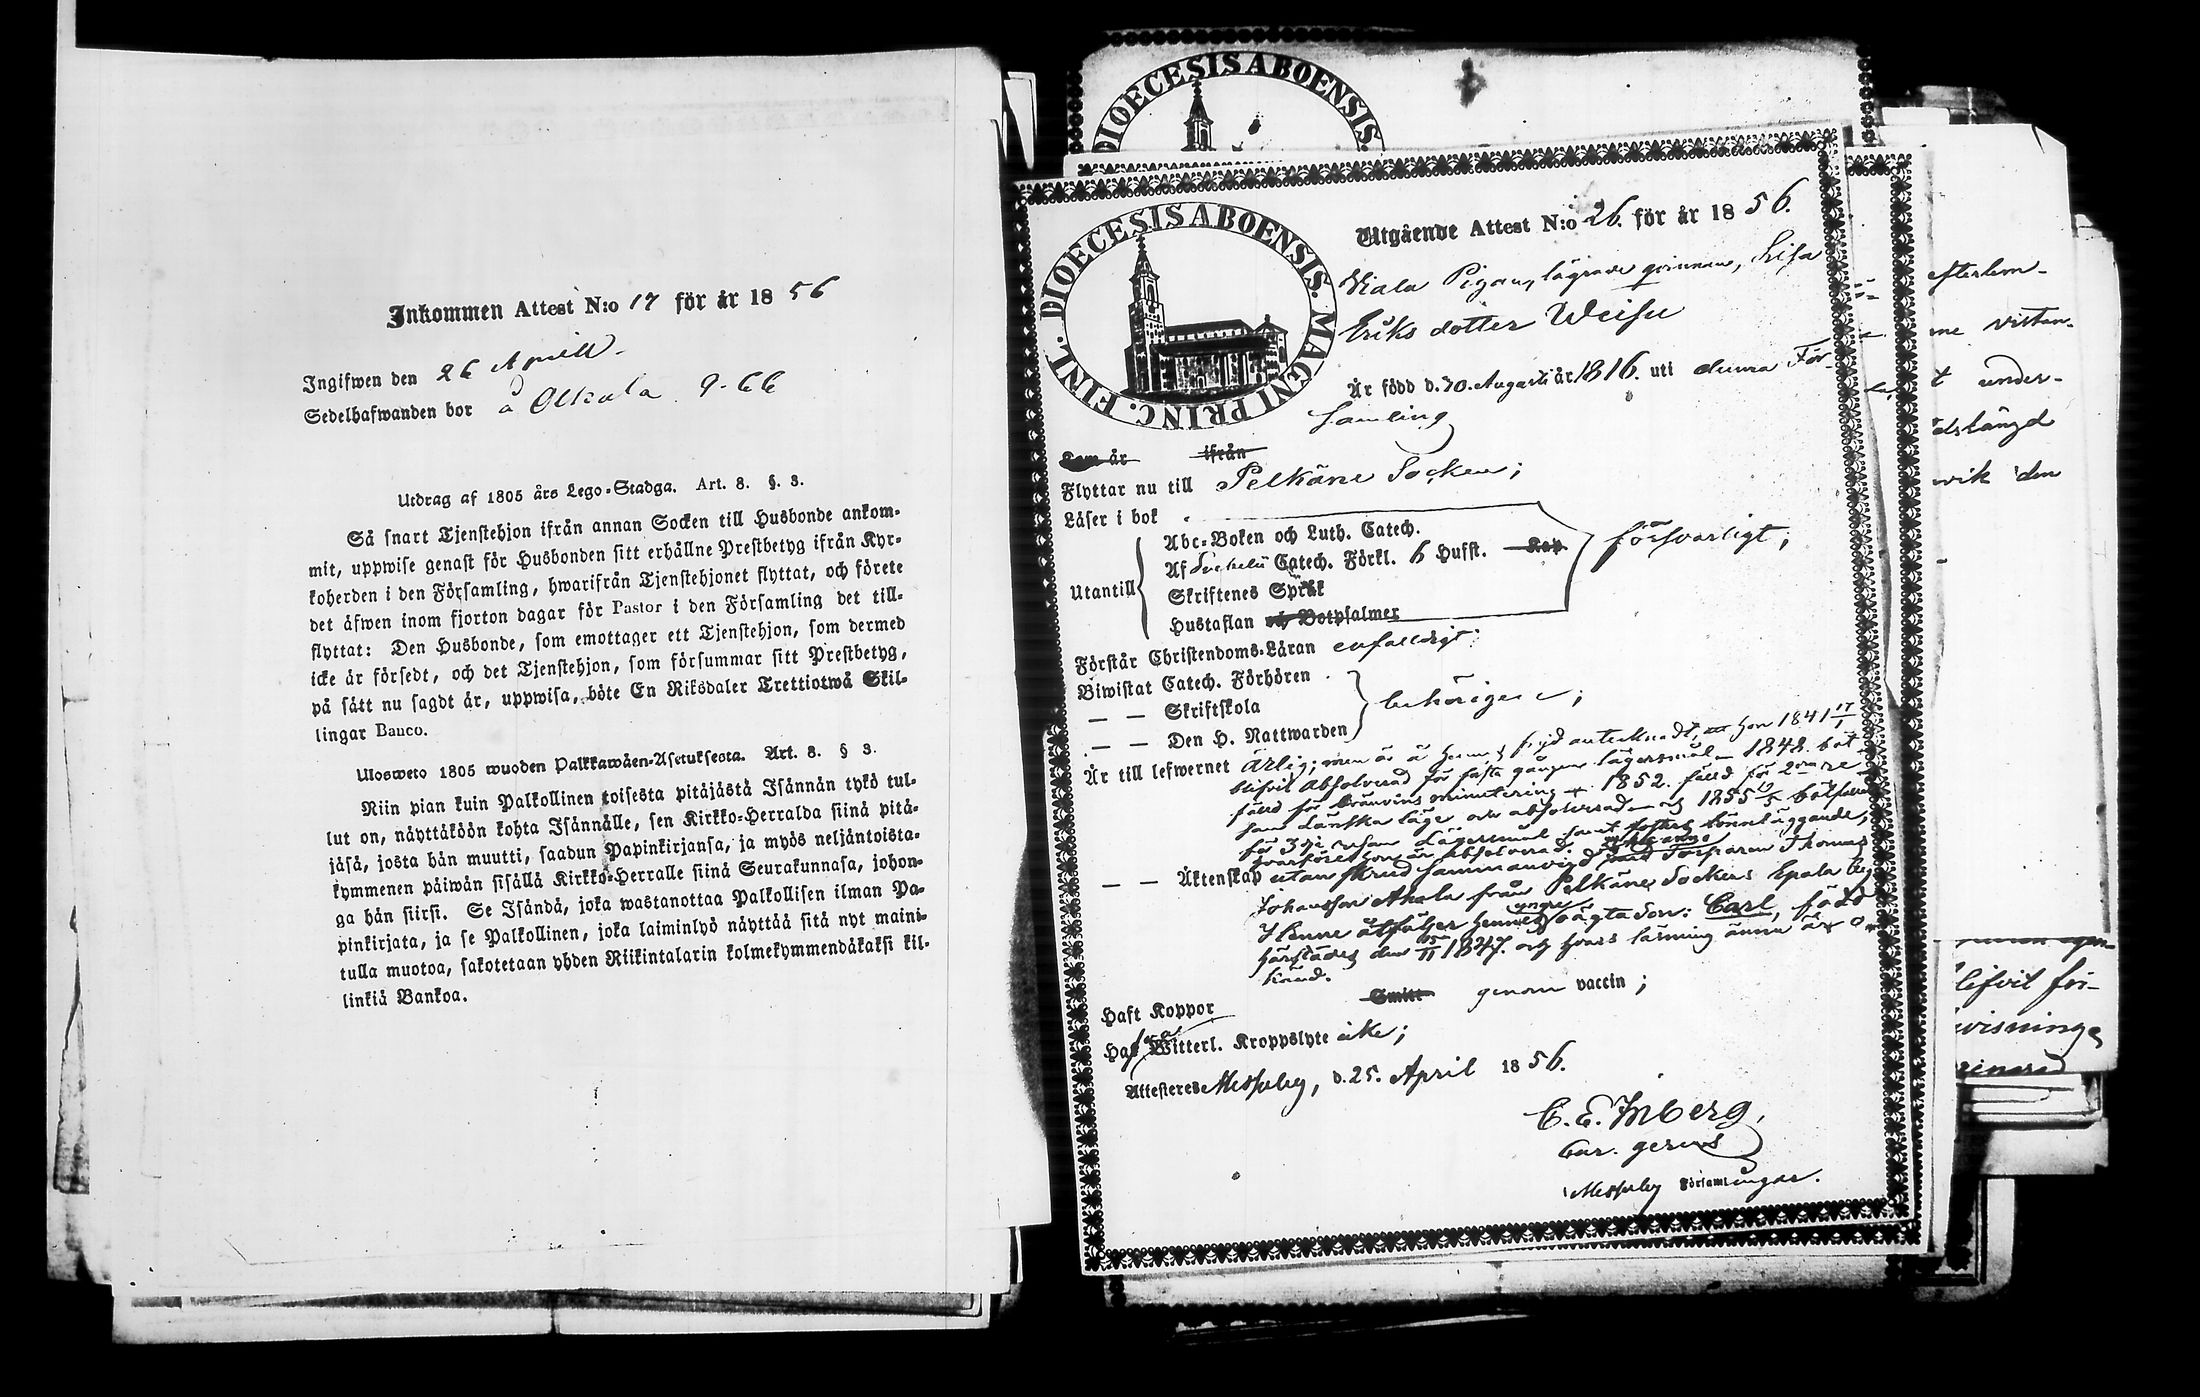 Inkommen Attest N:o 17 för år 1856
Ingifwen den 26 Aprill
Sedelhafwanden bor å Olkala 9-66
Utdrag af 1805 års Lego-Stadga. Art. 8. §. 3.
Så snart Tjenstehjon ifrån annan Socken till Husbonde ankom-
mit, uppwise genast för Husbonden sitt erhållne Prestbetyg ifrån Kyr-
koherden i den Församling, hwarifrån Tjenstehjonet flyttat, och förete
det äfwen inom fjorton dagar för Pastor i den Församling det till-
flyttat: Den Husbonde, som emottager ett Tjenstehjon, som dermed
icke är försedt, och det Tjenstehjon, som försummar sitt Prestbetyg,
på sätt nu sagdt är, uppwisa, böte En Riksdaler Trettiotwå Skil-
lingar Banco.
Ulosweto 1805 wuoden Palkkawäen-Asetuksesta. Art. 8. § 3.
Niin pian kuin Palkollinen toisesta pitäjästä Isännän tykö tul-
lut on, näyttäköön kohta Isännälle, sen Kirkko-Herralda siinä pitä-
jäsä, josta hän muutti, saadun Papinkirjansa, ja myös neljäntoista-
kymmenen päiwän sisällä Kirkko-Herralle siinä Seurakunnasa, johon-
ga hän siirsi. Se Isändä, joka wastanottaa Palkollisen ilman Pa-
pinkirjata, ja se Palkollinen, joka laiminlyö näyttää sitä nyt maini-
tulla muotoa, sakotetaan yhden Riikintalarin kolmekymmendäkaksi kil-
linkiä Bankoa.
DIOECESIS ABOENSIS.
DIOECESIS ABOENSIS. MAGNI PRINC. FINL.
Utgående Attest N:o 26. för år 1856.
Wiala Pigan, lägrade qvinnan, Lisa
Eriks dotter Weisu
Är född d. 30. Augusti år 1816. uti denna För-
samling
Kom år ifrån
Flyttar nu till Pelkäne Socken;
Läser i bok
Utantill
Abc-Boken och Luth. Catech.
Af Svebelii Catech. Förkl. 6 Hufst. Kap.
Skriftenes Språk
Hustaflan och Botpsalmer
försvarligt;
Förstår Christendoms-Läran enfaldigt;
Biwistat Catech. Förhören
— — Skriftskola
— — Den H. Nattwarden
behörigen;
Är till lefwernet ärlig; men är å hennes frejd antecknadt, att hon 1841 17/1
blifvit absolverad för första gången lägersmål 1848. böt-
fälld för bränvins minutering 1852. fälld för 2dra re
san Lönska läge och absolverad och 1855 bötfälld
för 3dje resan Lägersmål samt lönnläggande,
hvarföre hon är absolverad.
— — Äktenskap utan skrud sammanvigd med Torparen Thomas
Johansson Ahala från Pelkäne Sockens Epala by
Henne åtföljer hennes yngre oägta son: Carl, född
härstädes den 15/11 1847. och hvars läsning ännu är o-
känd.
Haft Koppor Smitt genom vaccin;
Haf Witterl. Kroppslyte icke;
Attesteres Messuby, d. 25. April 1856.
C. E. Inberg,
Cur. gerens
Messuby Församlingar.
efterlem-
me vittan-
t under-
wik den
lifvit för-
wisninge